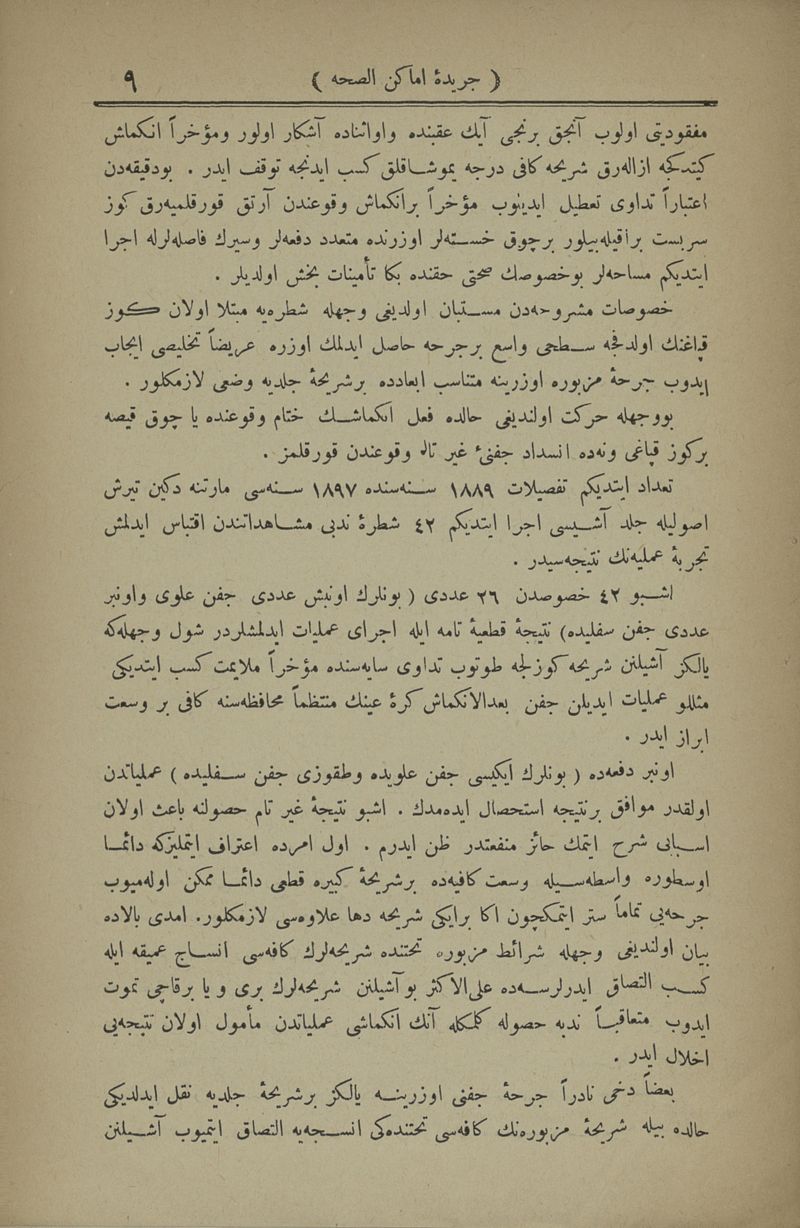 ( جريدهٔ اماكن الصحه ) ٩
مفقوديتى اولوب آنجق برنجى آيك عقبنده واواثناده آشكار اولور ومؤخراً انكماش
كيتدكجه ازاله‌رق شريحه كافى درجه يموشاقلق كسب ايدنجه توقف ايدر . بودقيقه‌دن
اعتباراً تداوى تعطيل ايدينوب مؤخراً برانكماش وقوعندن آرتق قورقلميه‌رق كوز
سربست براقيله‌بيلور برچوق خسته‌لر اوزرنده متعدد دفعه‌لر وسيرك فاصله‌لرله اجرا
ايتديكم مساحه‌لر بوخصوصك صحتى حقنده بكا تأمينات بخش اولديلر .
خصوصات مشروحه‌دن مستبان اولديغى وجهله شطره‌يه مبتلا اولان كوز
قپاغنك اولدقجه سطحى واسع برجرحه حاصل ايدلمك اوزره عريضاً تخليصى ايجاب
ايدوب جرحهٔ مزبوره اوزرينه متناسب ابعادده برشريحهٔ جلديه وضعى لازمكلور .
بووجهله حركت اولنديغى حالده فعل انكماشك ختام وقوعنده يا چوق قيصه
بركوز قپاغى ونه‌ده انسداد جفنئ غير تام وقوعندن قورقلمز .
تعداد ايتديكم تفصيلات ١٨٨٩ سنه‌سنده ١٨٩٧ سنه‌سى مارتنه دكين تيرش
اصوليله جلد آشيسى اجرا ايتديكم ٤٢ شطرهٔ ندبى مشاهداتندن اقتباس ايدلمش
تجربهٔ عمليه‌نك نتيجه‌سيدر .
اشبو ٤٢ خصوصدن ٢٦ عددى ( بونلرك اونبش عددى جفن علوى واونبر
عددى جفن سفليده) نتيجهٔ قطعيهٔ تامه ايله اجراى عمليات ايدلمشلردر شول وجهله‌كه
يالكز آشيلنن شريحه كوزلجه طوتوب تداوى سايه‌سنده مؤخراً ملايمت كسب ايتديكى
مثللو عمليات ايديلن جفن بعدالانكماش كرهٔ عينك منتظماً محافظه‌سنه كافى بر وسعت
ابراز ايدر .
اونبر دفعه‌ده ( بونلرك ايكيسى جفن علويده وطقوزى جفن سفليده ) عملياتدن
اولقدر موافق برنتيجه استحصال ايده‌مدك . اشبو نتيجهٔ غير تام حصولنه باعث اولان
اسبابى شرح ايتمك حائز منفعتدر ظن ايدرم . اول امرده اعتراف ايتمليزكه دائما
اوسطوره واسطه‌سيله وسعت كافيه‌ده برشريحهٔ كبيره قطعى دائما ممكن اوله‌ميوب
جرحه‌يى تماماً ستر ايتمكچون اكا برايكى شريحه دها علاوه‌سى لازمكلور. امدى بالاده
بيان اولنديغى وجهله شرائط مزبوره تحتنده شريحه‌لرك كافه‌سى انساج عميقه ايله
كسب التصاق ايدرلرسه‌ده على‌الاكثر بوآشيلنن شريحه‌لرك برى و يا برقاچى تموت
ايدوب متعاقباً ندبه حصوله كلمكله آنك انكماشى عملياتدن مأمول اولان نتيجه‌يى
اخلال ايدر .
بعضاً دخى نادراً جرحهٔ جفنى اوزرينه يالكز برشريحهٔ جلديه نقل ايدلديكى
حالده بيله شريحهٔ مزبوره‌نك كافه‌سى تحتنده‌كى انسجه‌يه التصاق ايتميوب آشيلنن